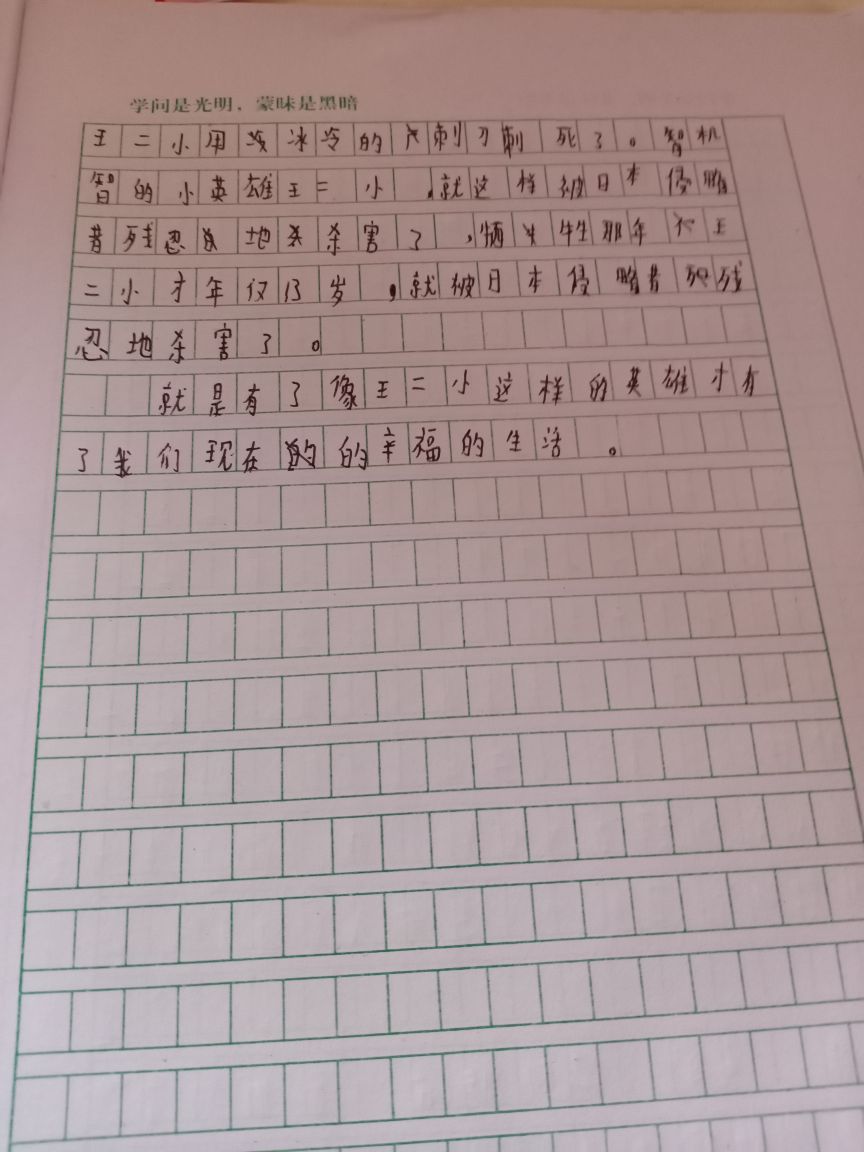 学问是光明，蒙昧是黑暗
王二小用冰冷的刺刀刺死了。智机
智的小英雄王二小，就这样被日本侵略
者残忍地杀害了，牺牲那年王
二小才年仅13岁，就被日本侵略者残
忍地杀害了。
就是有了像王二小这样的英雄才有
了我们现在的的辛福的生活。